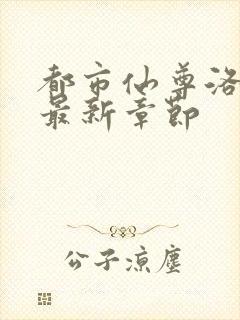 都市仙尊洛
最新章节
公子凉尘